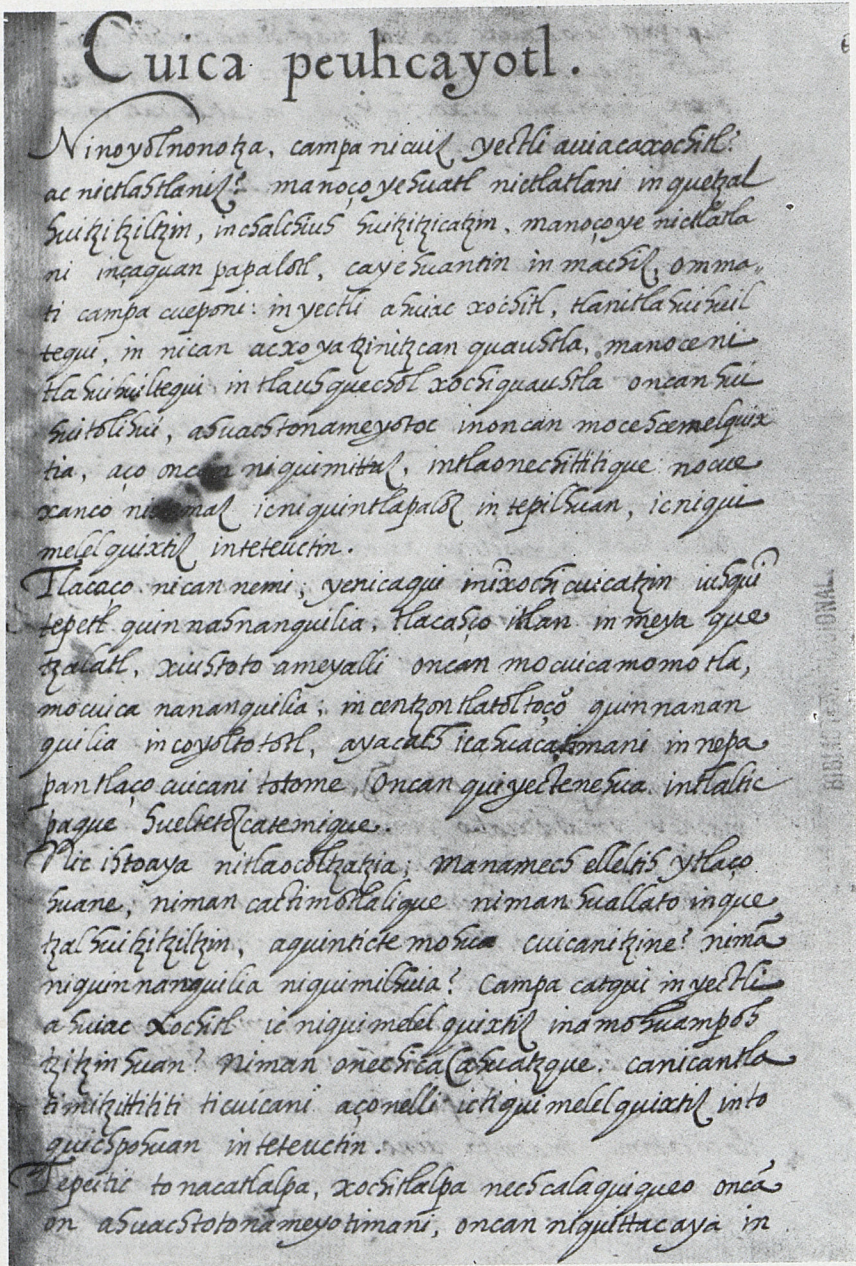 Cuica peuhcayotl.
Ninoyolnonotza, campa nicuiz yectli auiacaxochitl?
ac nictlahtlaniz? manoço yehuatl nictlatlani in quetzal
huitzitziltzin, inchalchiuh huitzitzicatzin, manoço ye nictlatla
ni inçaquan papalotl, ca yehuantin in machiz, omma„
ti campa cueponi: in yectli ahuiac xochitl, tlanitlahuihuil
tequi, in nican acxoyatzinitzcan quauhtla, manoce ni
tlahuihuiltequi in tlauhquechol xochiquauhtla oncan hui
huitolihui, ahuachtonameyotoc inoncan mocehcemelquix
tia, aço oncan niquimittaz, intlaonechittitique nocue
xanco nictemaz ic niquintlapaloz in tepilhuan, ic niqui
melelquixtiz inteteuctin.
Tlacaço nican nemi, ye nicaqui inixochcuicatzin iuhqui
tepetl quinnahnanquilia, tlacahço itlan in meya que
tzalatl, xiuhtoto ameyalli oncan mocuicamomotla,
mocuica nananquilia; in centzontlatoltoço quinnanan
quilia in coyoltototl, ayacach icahuacatimani in nepa
pan tlaço cuicani totome, Oncan quiyectenehua intlaltic
paque hueltetozcatemique.
Nic ihtoaya nitlaocoltzatzia; manamech ellelti ytlaço
huane, niman cactimotlalique niman huallato inque
tzal huitzitziltzin, aquinticte mohua cuicanitzine? nimā
niquinnanquilia niquimilhuia? Campa catqui in yectli
ahuiac Xochitl ic niquimelelquixtiz in amohuampoh
tzitzinhuan? Niman onechicacahuatzque. ca nican tla
timitzittititi ticuicani aço nelli ic tiquimelelquixtiz in to
quichpohuan in teteuctin.
Tepeitic tonacatlalpa, xochitlalpa nechcalaquiqueo oncā
on ahuachtotonameyotimani, oncan niquittacaya in
BIBLIOTECA NACIONAL